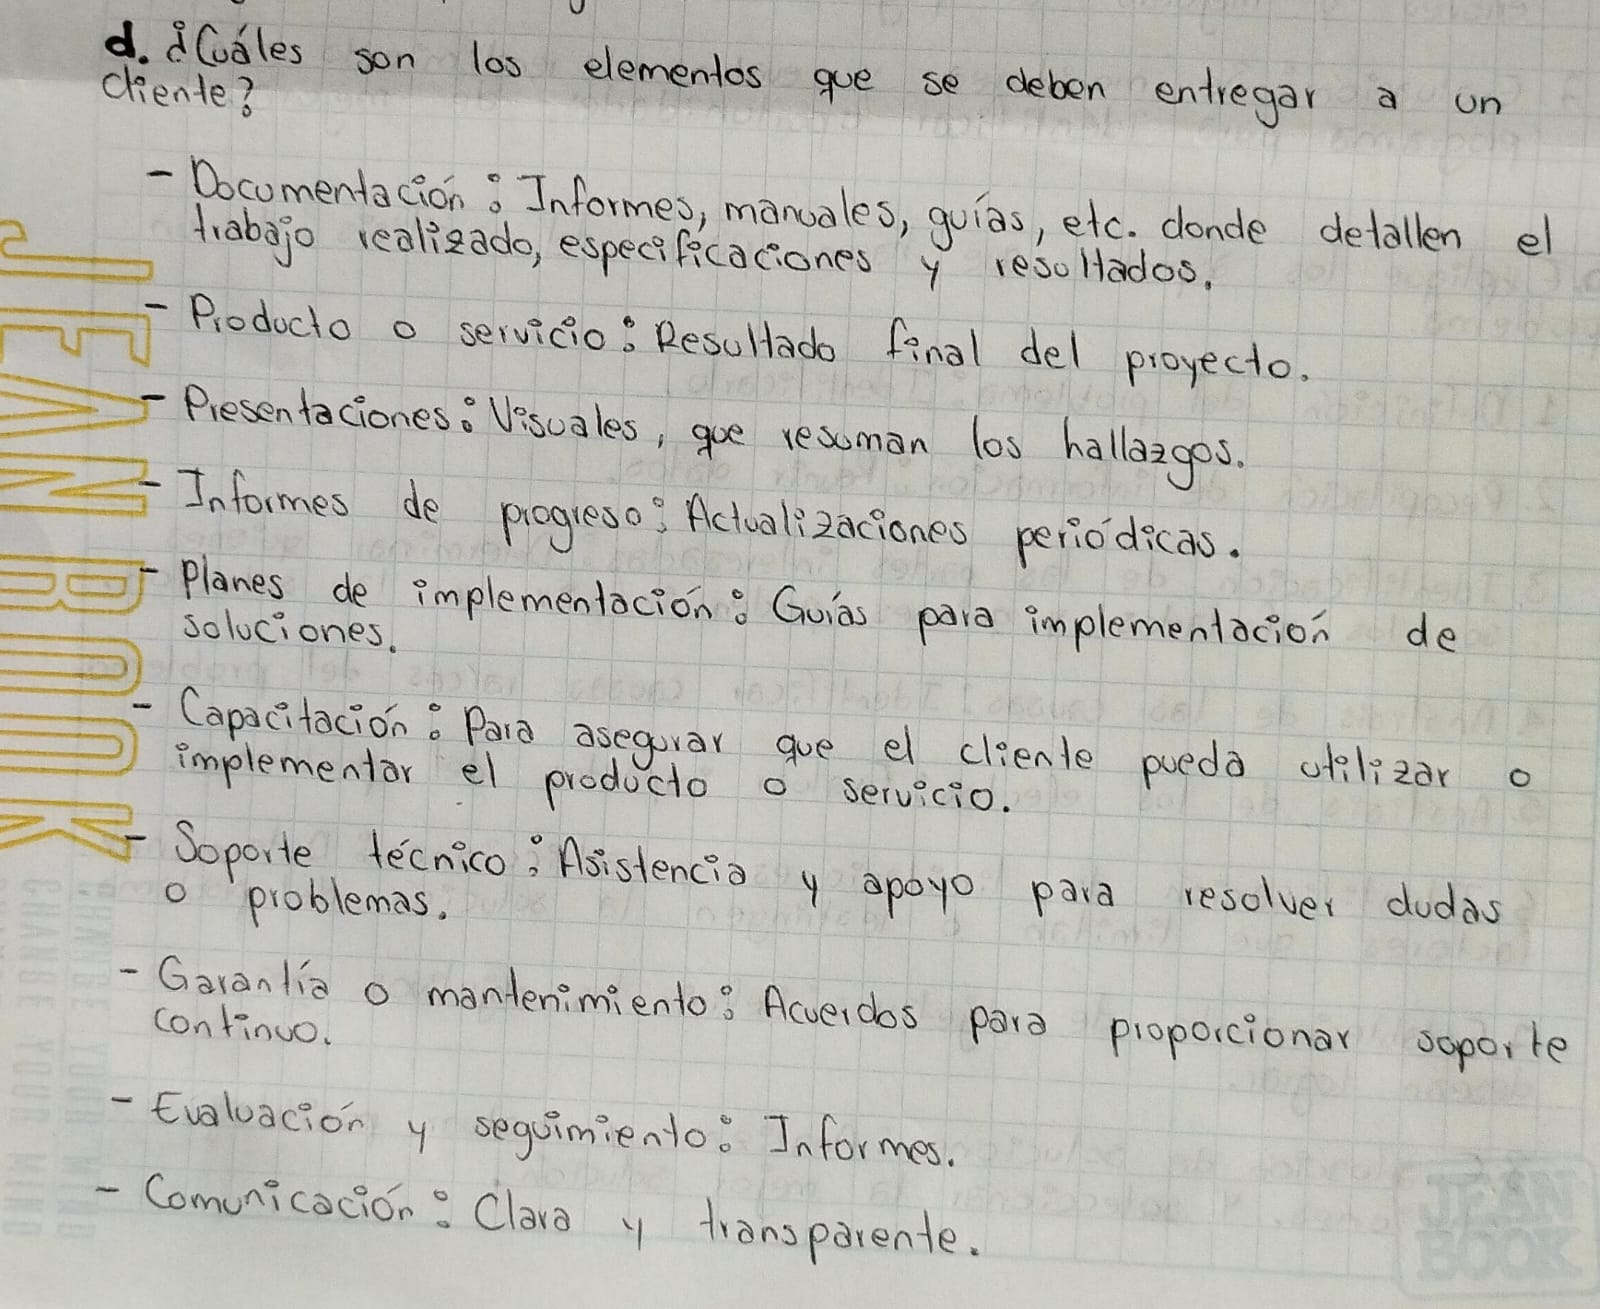 d. ¿Cuáles son los elementos que se deben entregar a un
cliente?
- Documentación: Informes, manuales, guías, etc. donde detallen el
trabajo realizado, especificaciones y resultados.
- Producto o servicio: Resultado final del proyecto.
- Presentaciones: Visuales, que resuman los hallazgos.
- Informes de progreso: Actualizaciones periódicas.
- Planes de implementación: Guías para implementación de
soluciones.
- Capacitación: Para asegurar que el cliente pueda utilizar o
implementar el producto o servicio.
- Soporte técnico: Asistencia y apoyo para resolver dudas
o problemas.
- Garantía o mantenimiento: Acuerdos para proporcionar soporte
continuo.
- Evaluación y seguimiento: Informes.
- Comunicación: Clara y transparente.
JEAN BOOK
CHANGE YOUR MIND
JEAN
BOOK